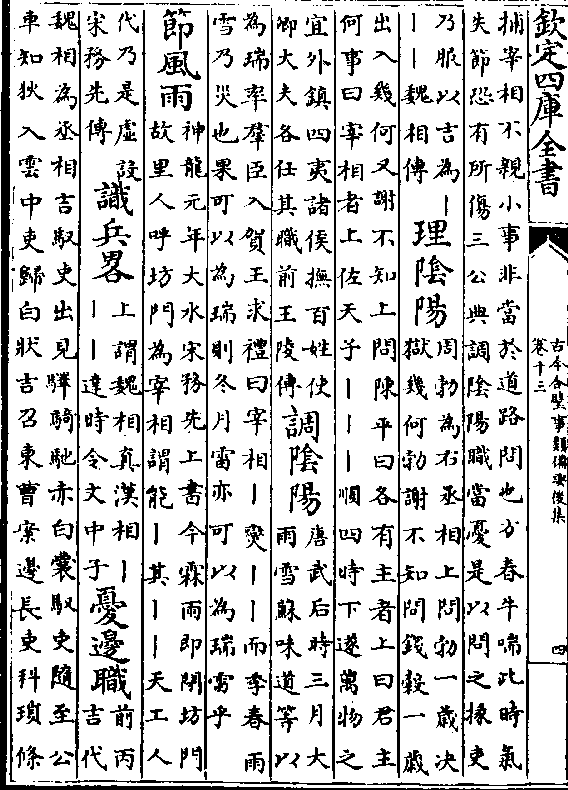 欽定四庫全書
古今合璧事類備要後集
卷十三
四
捕宰相不親小事非當於道路問也方春牛喘此時氣
失節恐有所傷三公典調陰陽職當憂是以問之掾吏
乃服以吉為丨
丨丨魏相傳
理陰陽
周勃為右丞相上問勃一歲决
獄幾何勃謝不知問錢穀一歲
出入幾何又謝不知上問陳平曰各有主者上曰君主
何事曰宰相者上佐天子丨丨丨順四時下遂萬物之
宜外鎮四夷諸侯撫百姓使
卿大夫各任其職前王陵傳
調陰陽
唐武后時三月大
雨雪蘇味道等以
為瑞率羣臣入賀王求禮曰宰相丨爕丨丨而季春雨
雪乃災也果可以為瑞則冬月雷亦可以為瑞雷乎
節風雨
神龍元年大水宋務先上書今霖雨即閉坊門
故里人呼坊門為宰相謂能丨其丨丨天工人
代乃是虚設
宋務先傳
識兵畧
上謂魏相真漢相丨
丨丨達時令文中子
憂邊職
前丙
吉代
魏相為丞相吉馭吏出見驛騎馳赤白囊馭吏隨至公
車知狄入雲中吏歸白狀吉召東曹案邊長吏科瑣條